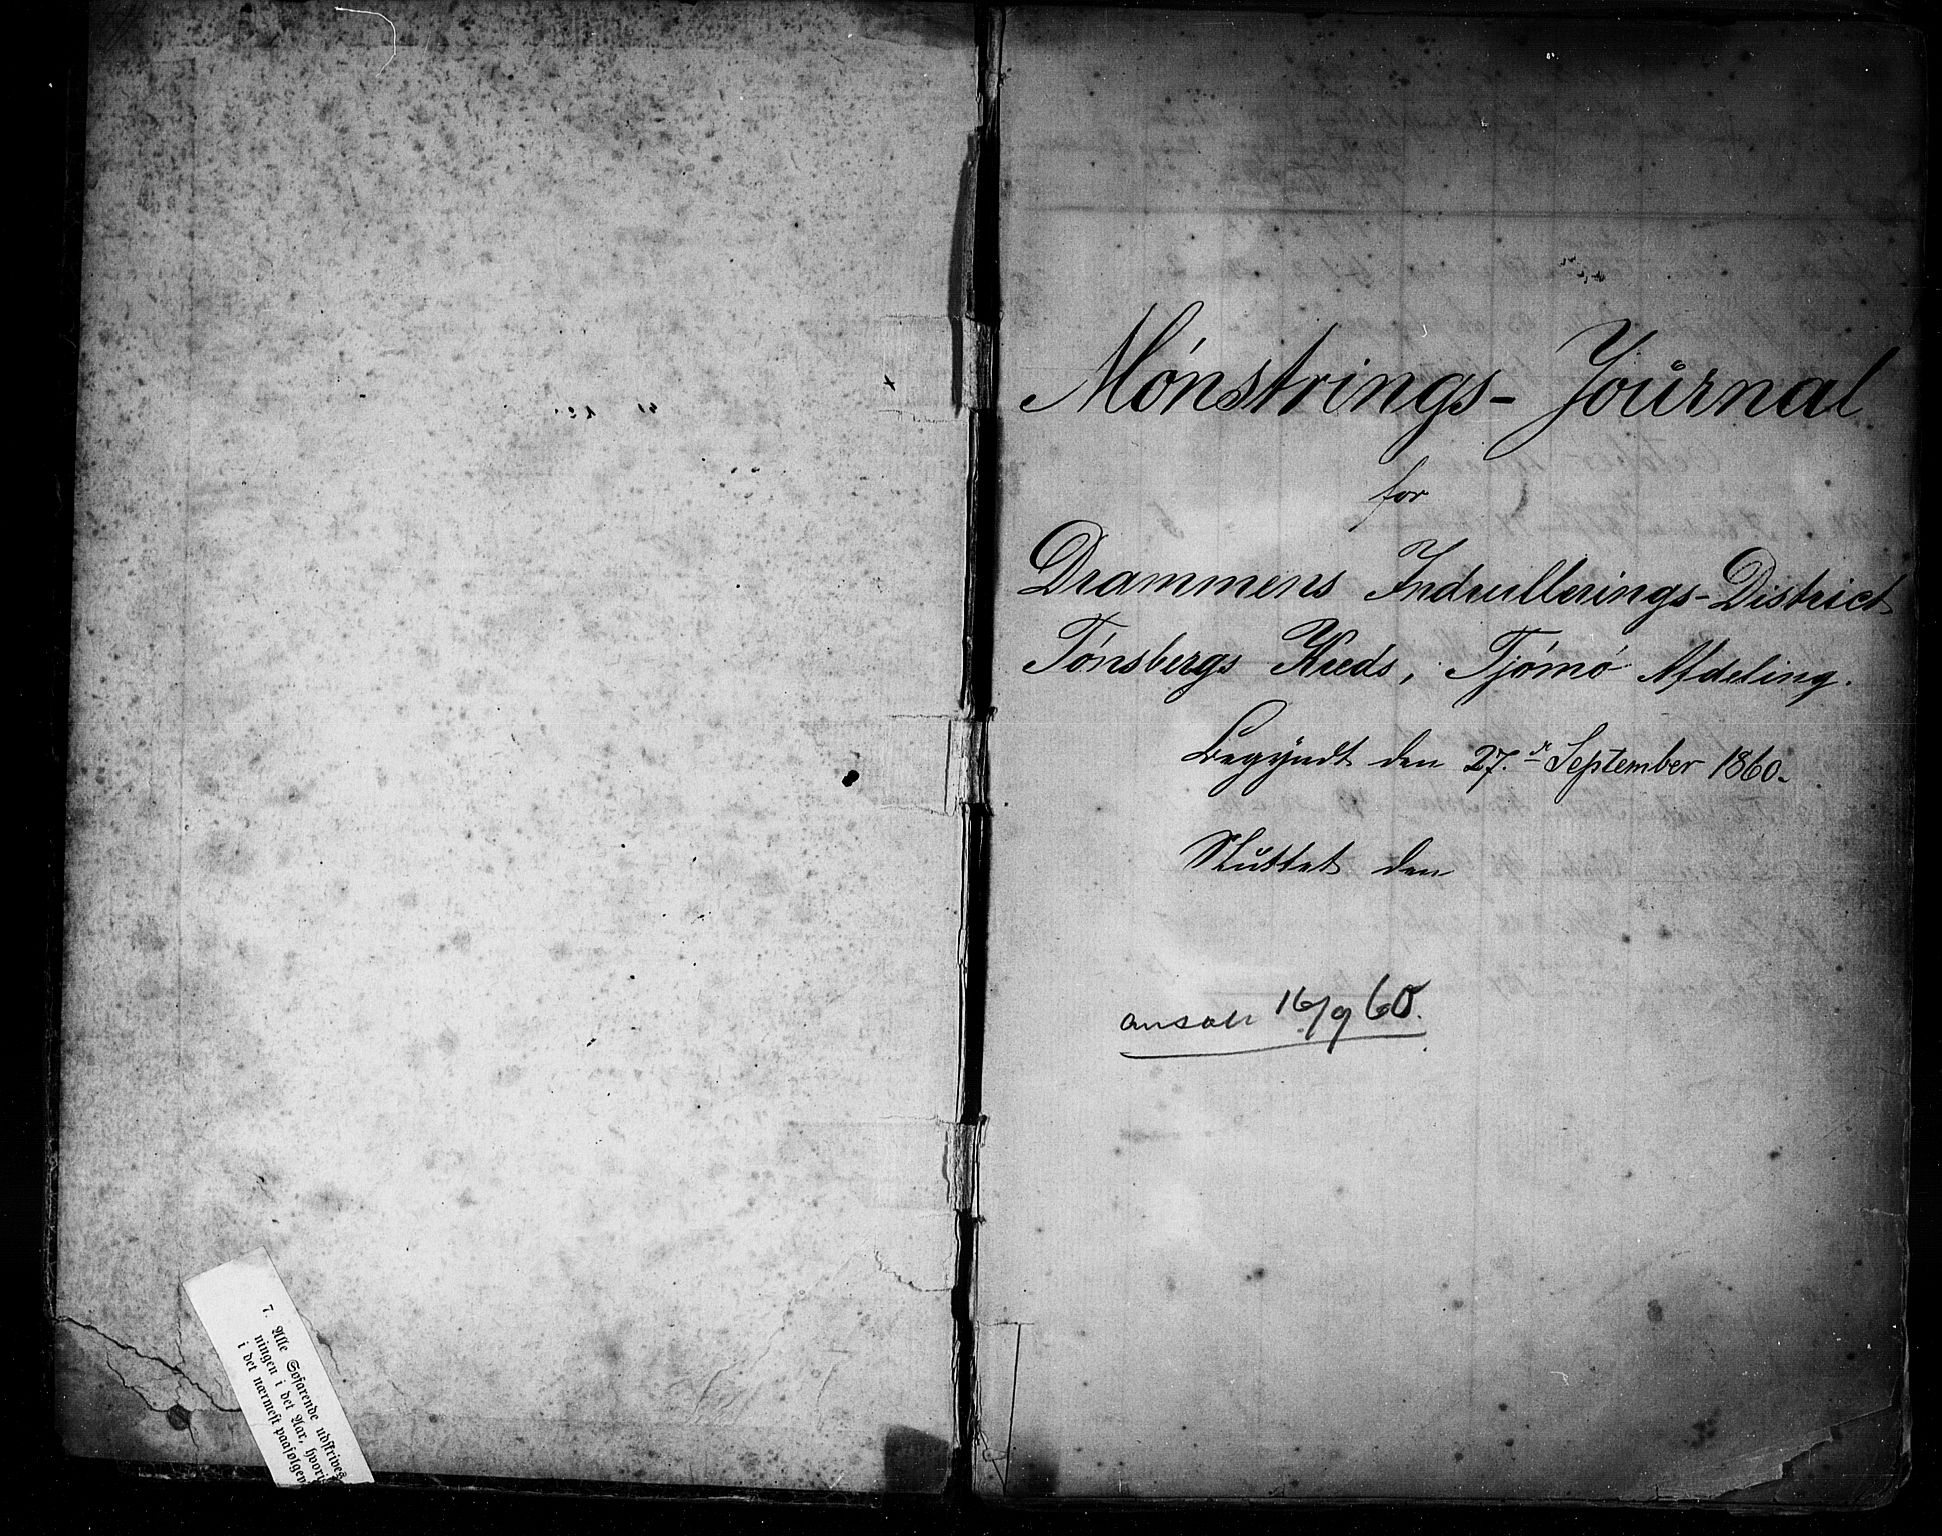 7. Alle Søfarende udstrives
ningen i det Aar, hvori
i det nærmest paafølgen
Mønstrings-Journal
for
Drammens Indrullerings-District
Tønsbergs Kreds, Tjømø Afdeling.
Begyndt den 27. September 1860.
Sluttet den
16/9 60.